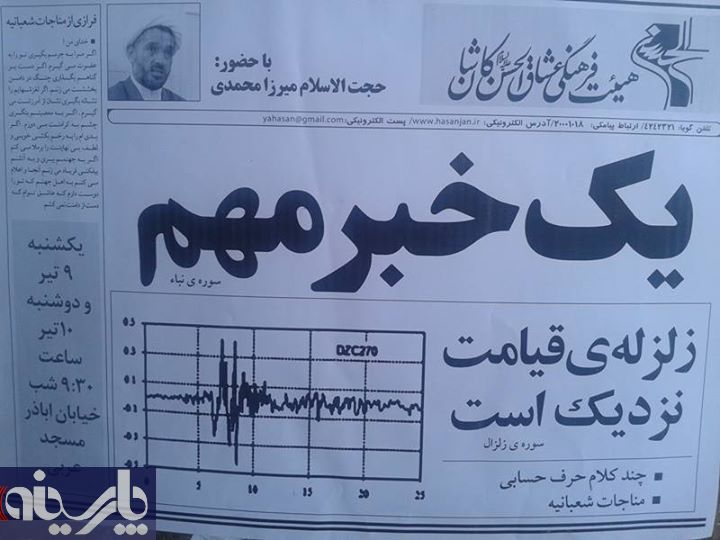 هیئت فرهنگی عشاق الحسن کاشان
با حضور:
حجت الاسلام میرزا محمدی
تلفن گویا: ۴۲۴۲۳۲۱/ ارتباط پیامکی: ۲۰۰۰۱۰۱۸/آدرس الکترونیکی: www.hasanjan.ir/ پست الکترونیکی: yahasan@gmail.com
یک خبر مهم
سوره ی نباء
زلزله‌ی قیامت
نزدیک است
سوره ی زلزال
چند کلام حرف حسابی
مناجات شعبانیه
DZC270
0.5
0.3
0.1
-0.1
-0.3
-0.5
0
5
10
15
20
25
فرازی از مناجات شعبانیه
خدای من!
اگر مرا به جرمم بگیری تو را به
عفوت می گیرم
یکشنبه
۹ تیر
و دوشنبه
۱۰ تیر
ساعت
۹:۳۰ شب
خیابان اباذر
مسجد
عربی
پارسینه